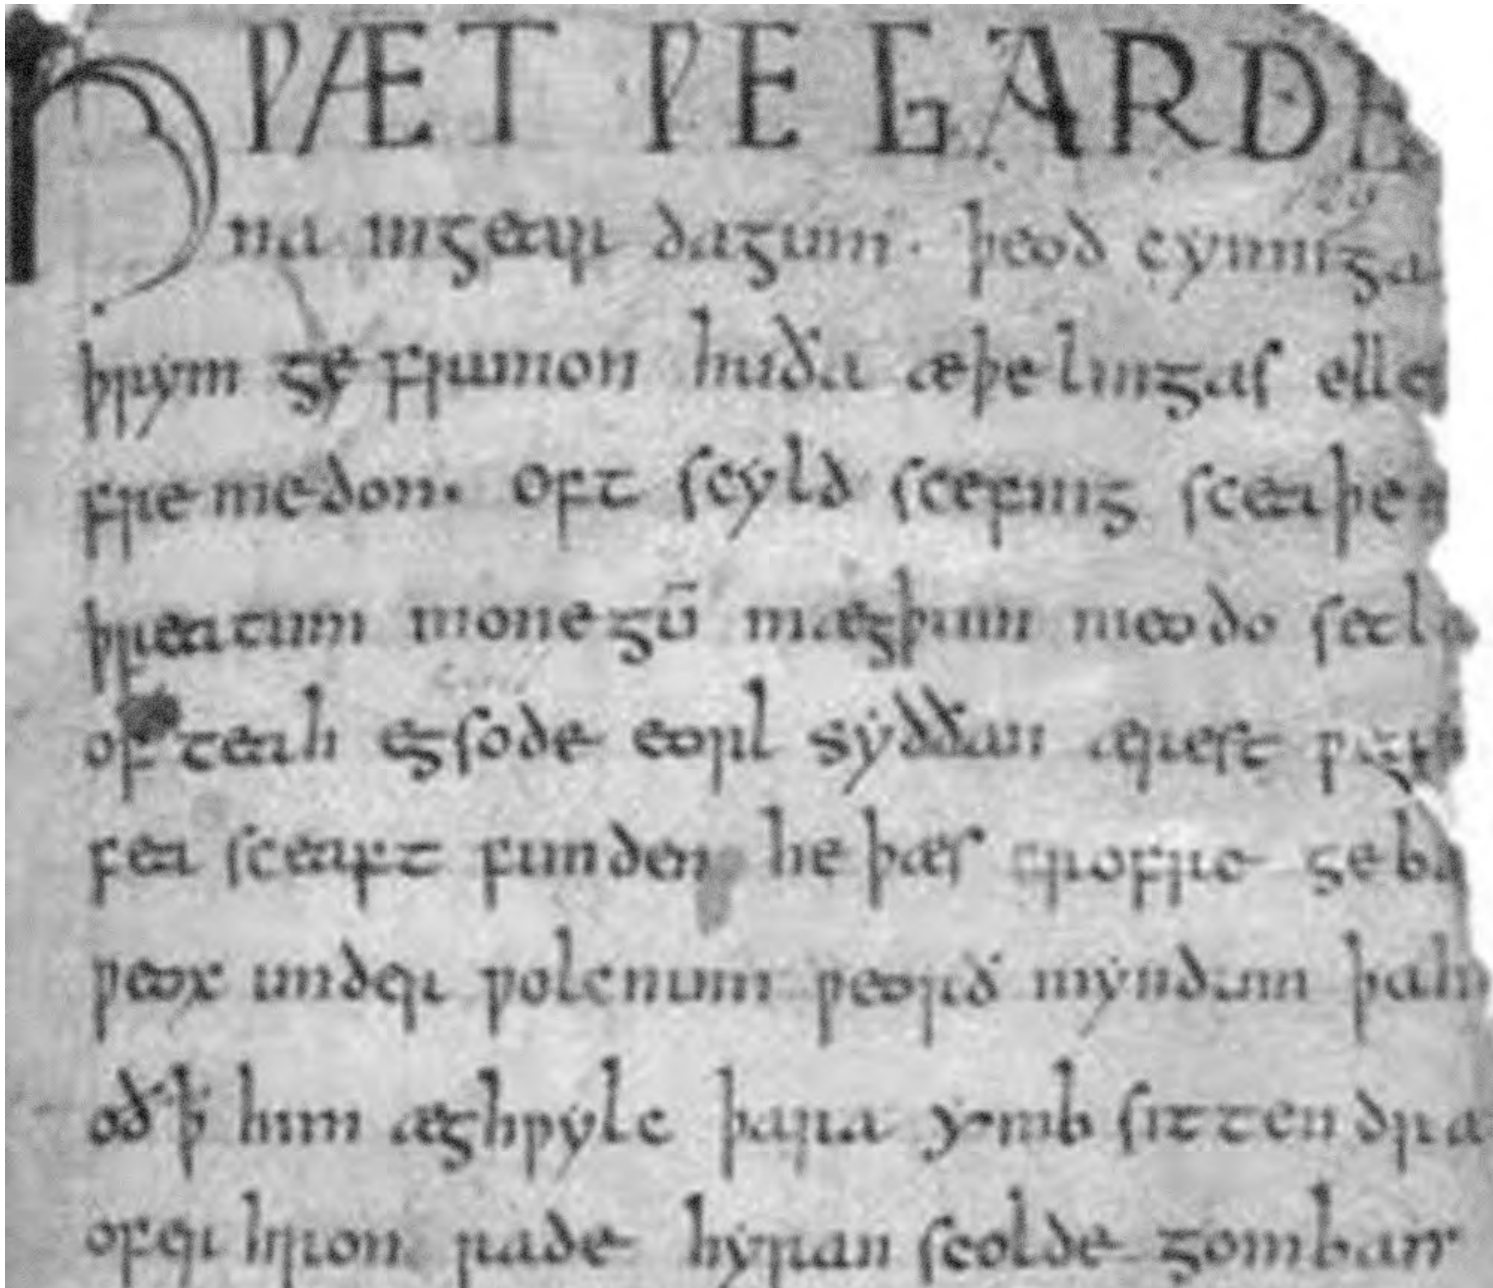 HǷÆT ǷE GARDE
na ingear dagum · þeod cyninga
þrym ge frumon huða æþelingas elle
fremedon. oft scyld scefing sceaþe
þreatum monegū mægþum meodo setla
of teah egsode eorl syððan ærest ƿær
fea sceaft funden he þæs frofre geba
ƿeox under ƿolcnum ƿeorð myndum þah
oð ꝥ him æghƿylc þara ymb sittendra
ofer hron rade hyran scolde gomban